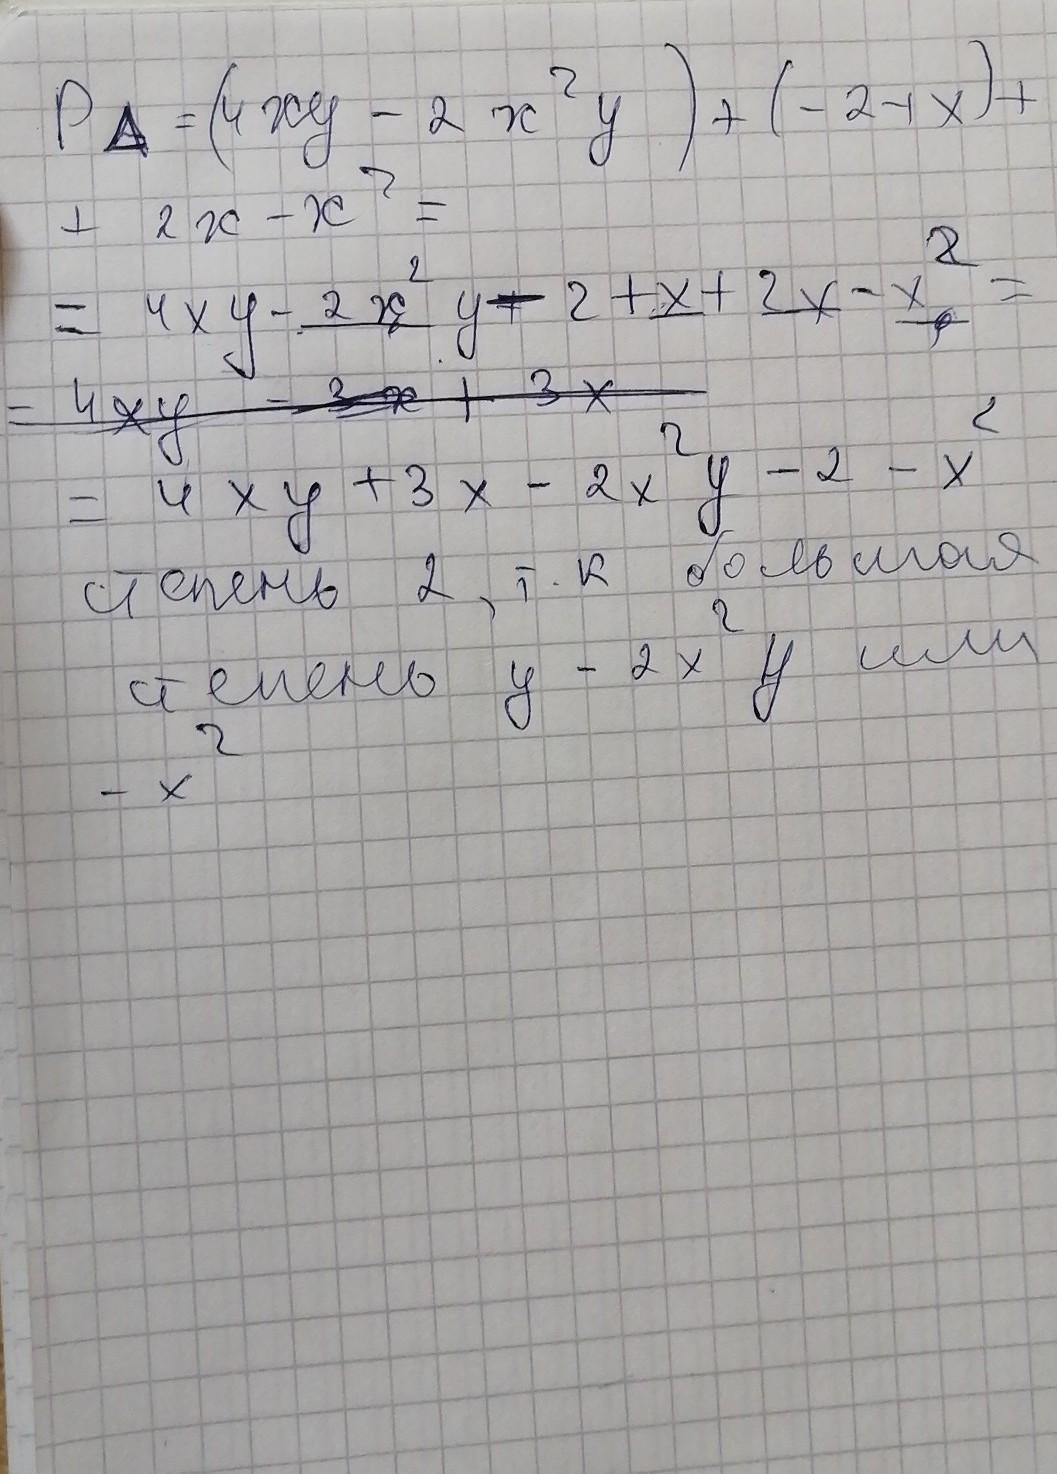 P Δ = (4xy - 2x²y) + (-2+x) +
+ 2x - x² =
= 4xy - 2x²y - 2 + x + 2x - x² =
= 4xy - 3x + 3x
= 4xy + 3x - 2x²y - 2 - x²
степень 2, т.к большая
степень у - 2x²y или
- x²